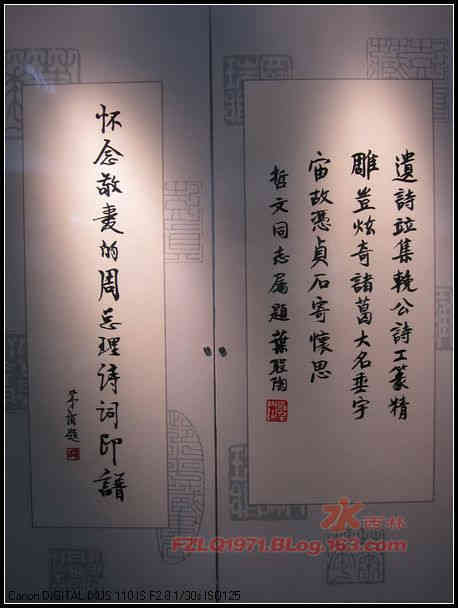 遺詩竝集輓公詩工篆精
雕豈炫奇諸葛大名垂宇
宙故憑貞石寄懷思
哲文同志属題 葉聖陶
怀念敬爱的周总理诗词印譜
茅盾题
水西林
FZLQ1971.Blog.163.com
Canon DiGITAL IXUS 110 IS F2.8 1/30s ISO125